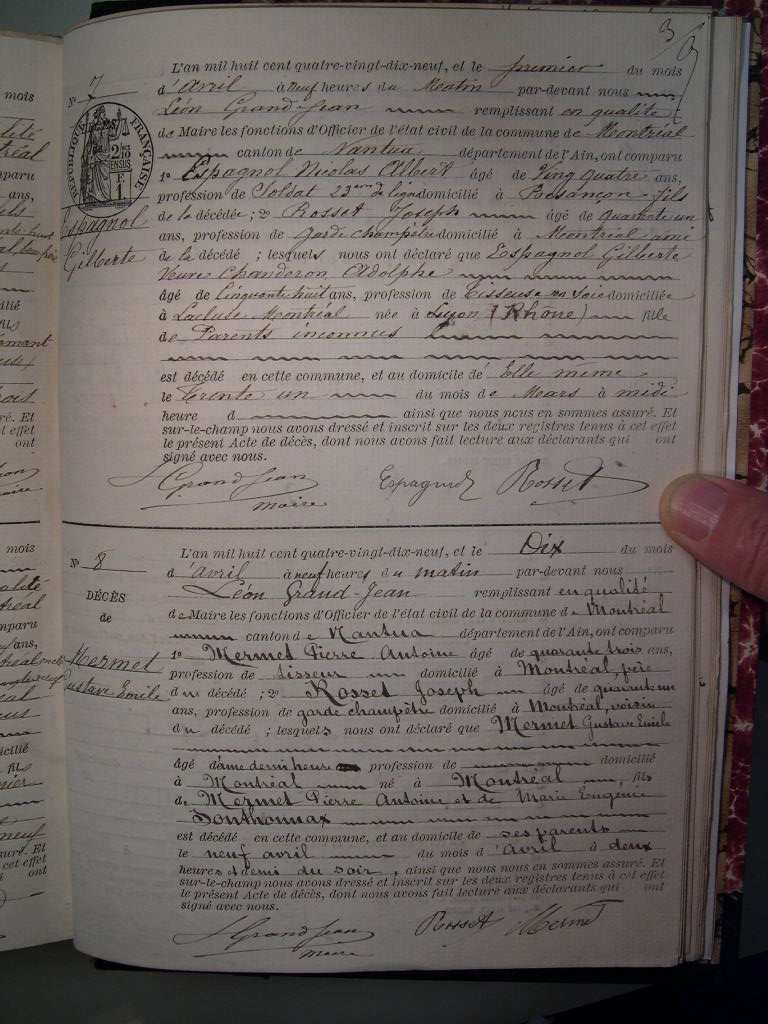 3
L'an mil huit cent quatre-vingt-dix-neuf, et le premier du mois
N° 7
d'Avril à neuf heures du Matin par-devant nous
Léon Grand-Jean remplissant en qualité
de Maire les fonctions d'Officier de l'état civil de la commune de Montréal
canton de Nantua département de l'Ain, ont comparu
1° Espagnol Nicolas Albert âgé de Vingt quatre ans,
profession de Soldat 23eme de ligne domicilié à Besançon fils
de la décédée; 2° Rosset Joseph âgé de quarante un
ans, profession de garde champêtre domicilié à Montréal ami
de la décédé ; lesquels nous ont déclaré que Espagnol Gilberte
Veuve Chanderon Adolphe
âgé de Cinquante huit ans, profession de Tisseuse en soie domiciliée
à Lacluse Montréal née à Lyon (Rhône) fille
de Parents inconnus
est décédé en cette commune, et au domicile de Elle même
le trente un du mois de Mars à midi
heure d ainsi que nous nous en sommes assuré. Et
sur-le-champ nous avons dressé et inscrit sur les deux registres tenus à cet effet
le présent Acte de décès, dont nous avons fait lecture aux déclarants qui ont
signé avec nous.
RÉPUBLIQUE FRANÇAISE
Espagnol
Gilberte
L Grand Jean
maire
Espagnol
Rosset
L'an mil huit cent quatre-vingt-dix-neuf, et le Dix du mois
N° 8
d'avril à neuf heures du matin par-devant nous
Léon Grand-Jean remplissant en qualité
de Maire les fonctions d'Officier de l'état civil de la commune de Montréal
canton de Nantua département de l'Ain, ont comparu
1° Mermet Pierre Antoine âgé de quarante trois ans,
profession de tisseur domicilié à Montréal, père
du décédé ; 2° Rosset Joseph âgé de quarante un
ans, profession de garde champêtre domicilié à Montréal, voisin
du décédé ; lesquels nous ont déclaré que Mermet Gustave Emile
âgé d'une demi heure profession de domicilié
à Montréal né à Montréal, fils
de Mermet Pierre Antoine et de Marie Eugénie
Donthonnax
est décédé en cette commune, et au domicile de ses parents
le neuf avril du mois d'Avril à deux
heures et demi du soir, ainsi que nous nous en sommes assuré. Et
sur-le-champ nous avons dressé et inscrit sur les deux registres tenus à cet effet
le présent Acte de décès, dont nous avons fait lecture aux déclarants qui ont
signé avec nous.
DÉCÈS
de
Mermet
Gustave Emile
L Grand Jean
maire
Rosset
Mermet